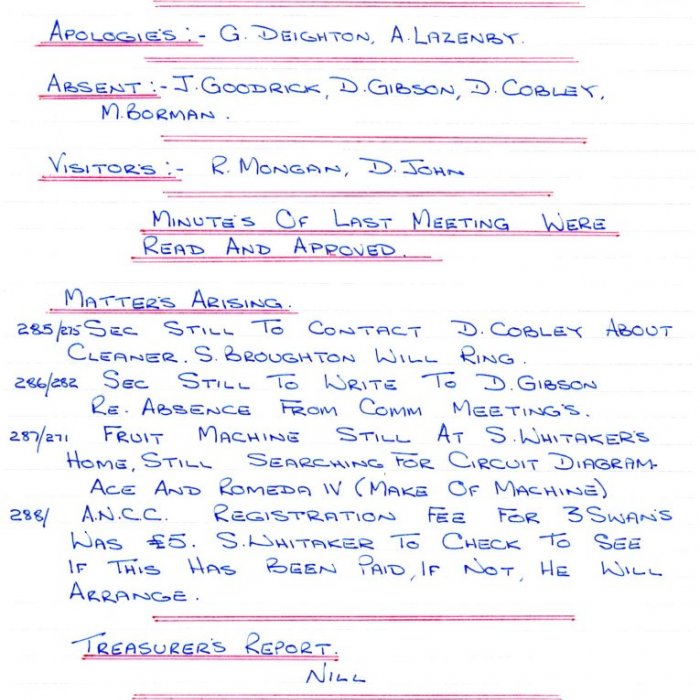 APOLOGIE'S :- G. DEIGHTON, A. LAZENBY.
ABSENT :- J. GOODRICK, D. GIBSON, D. COBLEY,
M. BORMAN.
VISITOR'S :- R. MONGAN, D. JOHN
MINUTE'S OF LAST MEETING WERE
READ AND APPOVED.
MATTER'S ARISING.
285/275 SEC STILL TO CONTACT D. COBLEY ABOUT
CLEANER. S. BROUGHTON WILL RING.
286/282 SEC STILL TO WRITE TO D. GIBSON
RE. ABSENCE FROM COMM MEETING'S.
287/271 FRUIT MACHINE STILL AT S. WHITAKER'S
HOME, STILL SEARCHING FOR CIRCUIT DIAGRAM-
ACE AND ROMEDA IV (MAKE OF MACHINE)
288/ A.N.C.C. REGISTRATION FEE FOR 3 SWAN'S
WAS £5. S. WHITAKER TO CHECK TO SEE
IF THIS HAS BEEN PAID, IF NOT, HE WILL
ARRANGE.
TREASURER'S REPORT.
NILL